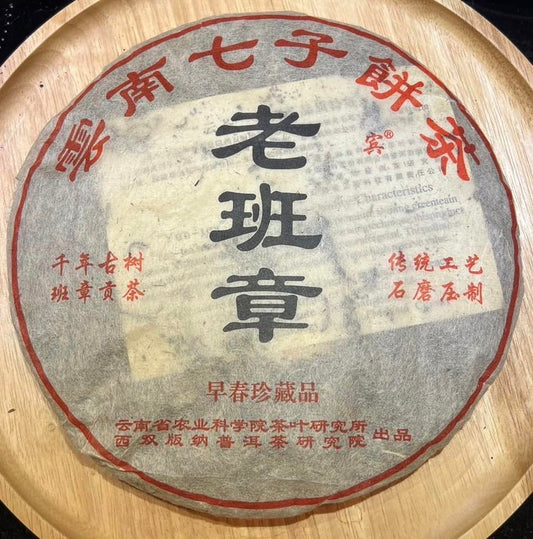 雲南七子餅茶
老班章
宾®
千年古树
班章贡茶
传统工艺
石磨压制
早春珍藏品
云南省农业科学院茶叶研究所
西双版纳普洱茶研究院
出品
Characteristics